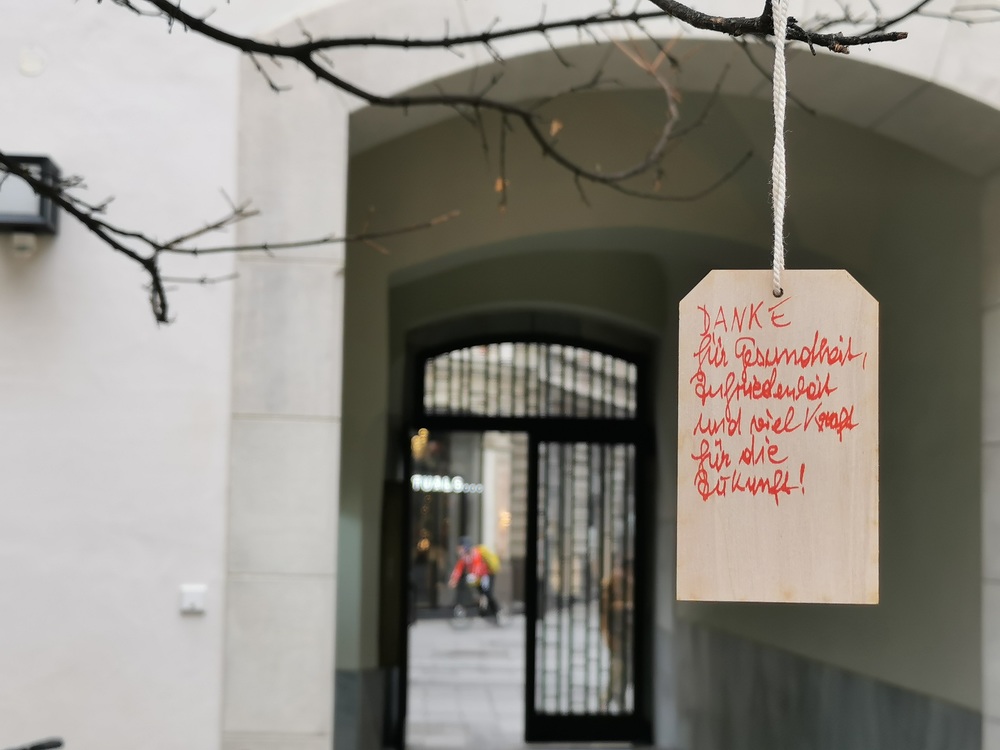 DANKE
für Gesundheit,
Zufriedenheit
und viel Kraft
für die
Zukunft!